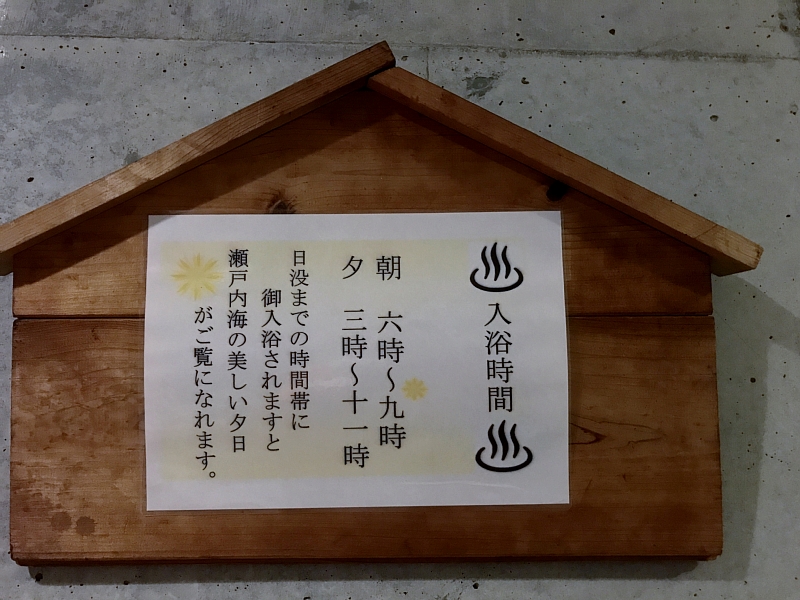 ♨入浴時間♨
朝 六時～九時
夕 三時～十一時
日没までの時間帯に
御入浴されますと
瀬戸内海の美しい夕日
がご覧になれます。